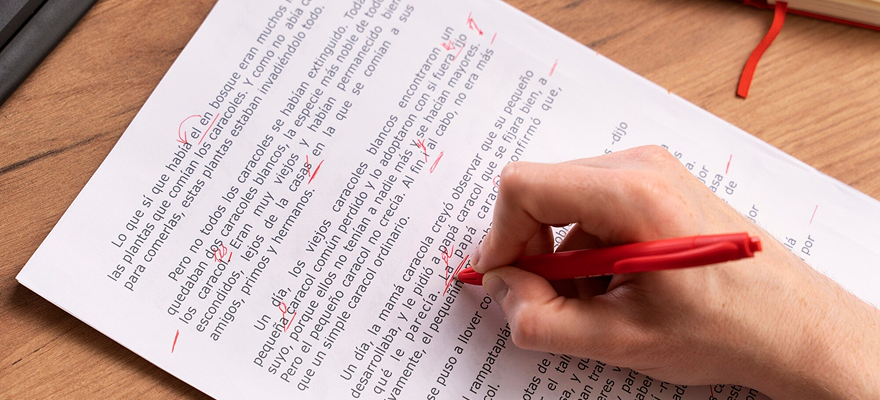 Lo que sí que había el en bosque eran muchos
las plantas que comían los caracoles. Y como no abía
para comerlas, estas plantas estaban invadiéndolo todo.
Pero no todos los caracoles se habían extinguido. Toda
quedaban dos caracoles blancos, la especie más noble de todo
los caracol. Eran muy viejos y habían permanecido bien
escondidos, lejos de la casas en la que se comían a sus
amigos, primos y hermanos.
Un día, los viejos caracoles blancos encontraron un
pequeña caracol común perdido y lo adoptaron con si fuera ijo
suyo, porque ellos no tenían a nadie más y se hacían mayores.
Pero el pequeño caracol no crecía. Al fin i al cabo, no era más
que un simple caracol ordinario.
Un día, la mamá caracola creyó observar que su pequeño
desarrollaba, y le pidió a papá caracol que se fijara bien, a
qué le parecía. papá confirmó que,
ivamente, el pequeño
se puso a llevar co
rampataplán